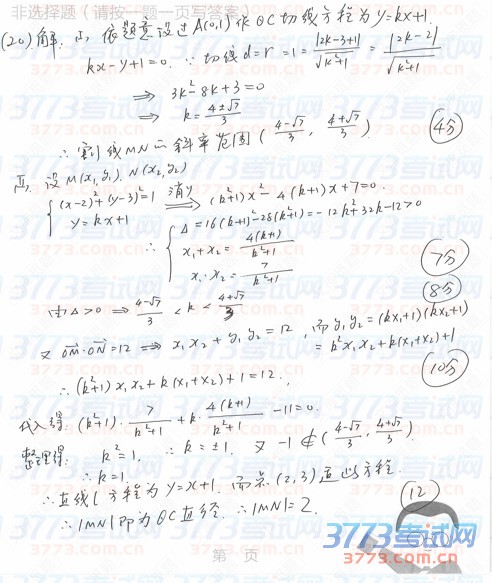 非选择题（请按一题一页写答案）
(20)解：(I) 依题意设过A(0,1)作⊙C切线方程为y=kx+1.
kx-y+1=0. ∵切线d=r=1=|2k-3+1|/√(k²+1)=|2k-2|/√(k²+1)
⇒ 3k²-8k+3=0
⇒ k=(4±√7)/3
∴割线MN的斜率范围((4-√7)/3, (4+√7)/3) (4分)
II, 设M(x₁,y₁), N(x₂,y₂)
{(x-2)²+(y-3)²=1 消y
y=kx+1 ⇒ (k²+1)x²-4(k+1)x+7=0.
∴{Δ=16(k+1)²-28(k²+1)=-12k²+32k-12>0
x₁+x₂=4(k+1)/(k²+1)
x₁·x₂=7/(k²+1) (7分)
由Δ>0 ⇒ (4-√7)/3<k<(4+√7)/3 (8分)
又OM·ON=12 ⇒ x₁x₂+y₁y₂=12, 而y₁y₂=(kx₁+1)(kx₂+1)
=k²x₁x₂+k(x₁+x₂)+1
∴(k²+1)x₁x₂+k(x₁+x₂)+1=12. (10分)
代入得: (k²+1)·7/(k²+1)+k·4(k+1)/(k²+1)-11=0.
整理得: k²=1, ∴k=±1. 又-1∉((4-√7)/3, (4+√7)/3).
∴k=1.
∴直线l方程为y=x+1. 而点(2,3)适此方程.
∴|MN|即为⊙C直径. ∴|MN|=2. (12)
3773考试网
www.3773.com.cn
第 页